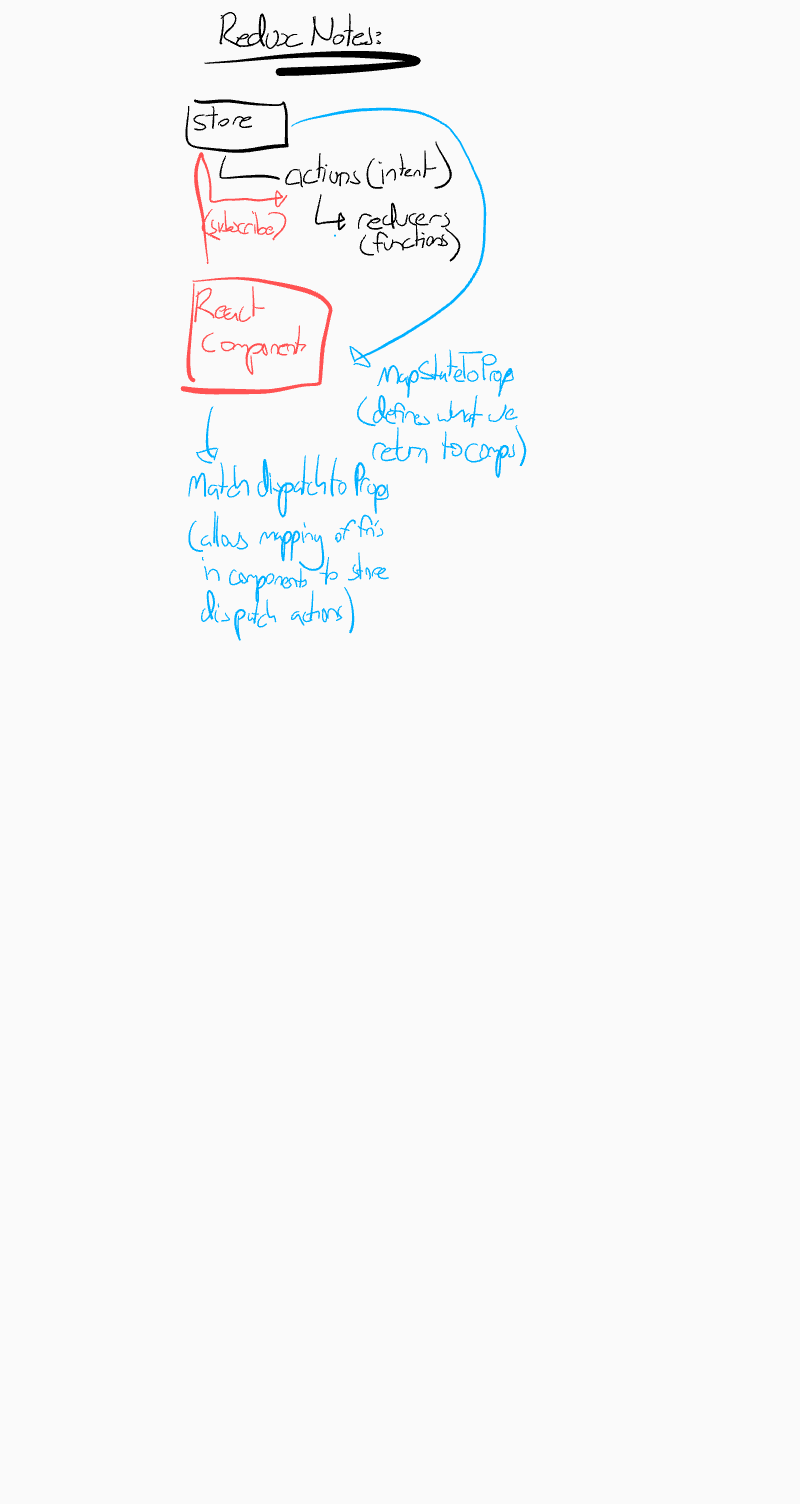 Redux Notes:
store
actions (intent)
(subscribe)
reducers
(functions)
React
Components
MapStateToProps
(defines what we
return to comps)
Match dispatch to Props
(allows mapping of fn's
in components to store
dispatch actions)